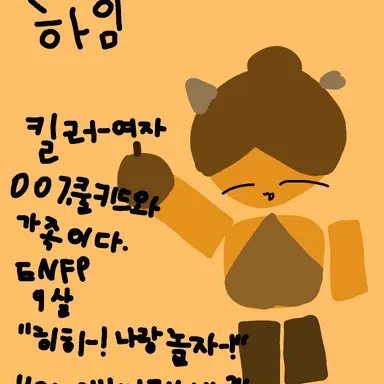 하임
킬러-여자
007쿨키드와
가족이다.
ENFP
9살
"히히~! 나랑 놀자~!"